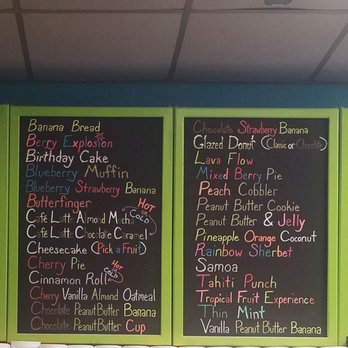 Banana Bread
Berry Explosion
Birthday Cake
Blueberry Muffin
Blueberry Strawberry Banana
Butterfinger
HOT
Café Latté Almond Mocha
COLD
Café Latté Chocolate Caramel
Cheesecake (Pick a Fruit)
Cherry Pie
HOT
Cinnamon Roll
COLD
Cherry Vanilla Almond Oatmeal
Chocolate Peanut Butter Banana
Chocolate Peanut Butter Cup
Chocolate Strawberry Banana
Glazed Donut (Classic or Chocolate)
Lava Flow
Mixed Berry Pie
Peach Cobbler
Peanut Butter Cookie
Peanut Butter & Jelly
Pineapple Orange Coconut
Rainbow Sherbet
Samoa
Tahiti Punch
Tropical Fruit Experience
Thin Mint
Vanilla Peanut Butter Banana